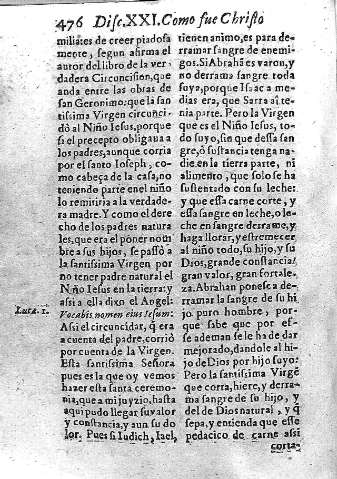 476 Disc. XXI. Como fue Christo
milia̅tes de creer piadosa
mente, segun afirma el
autor del libro de la ver
dadera Circuncision, que
anda entre las obras de
san Geronimo: que la san
tissima Virgen circunci
dò al Niño Iesus, porque
si el precepto obligava a
los padres, aunque corria
por el santo Ioseph, co-
mo cabeça de la casa, no
teniendo parte en el niño
lo remitiria a la verdade-
ra madre. Y como el dere
cho de los padres natura
les, que era el poner nom
bre a sus hijos, se passò a
la santissima Virgen por
no tener padre natural el
Niño Iesus en la tierra: y
assi a ella dixo el Angel:
Lucæ. 1.
Vocabis nomen eius Iesum:
Assi el circuncidar, q̃ era
a cuenta del padre, corriò
por cuenta de la Virgen.
Esta santissima Señora
pues es la que oy vemos
hazer esta santa ceremo-
nia, que a mi juyzio, hasta
aqui pudo llegar su valor
y constancia, y aun su do
lor. Pues si Iudich, Iael,
tienen animo, es para de-
rramar sangre de enemi-
gos. Si Abrahã es varon, y
no derrama sangre toda
suya, porque Isaac a me-
dias era, que Sarra ai te-
nia parte. Pero la Virgen
que es el Niño Iesus, to-
do suyo, sin que dessa san
gre, ò sustancia tenga na-
die en la tierra parte, ni
alimento, que solo se ha
sustentado con su leche:
y que essa carne corte, y
essa sangre en leche, o le-
che en sangre derrame, y
haga llorar, y estremecer
al niño todo, su hijo, y su
Dios, grande constancia,
gran valor, gran fortale-
za. Abrahan ponese a de-
rramar la sangre de su hi
jo puro hombre, por-
que sabe que por es-
se ademan se le ha de dar
mejorado, dandole al hi-
jo de Dios por hijo suyo:
Pero la santissima Virgẽ
que corta, hiere, y derra-
ma sangre de su hijo, y
del de Dios natural, y q̃
sepa, y entienda que esse
pedacico de carne assi
corta-